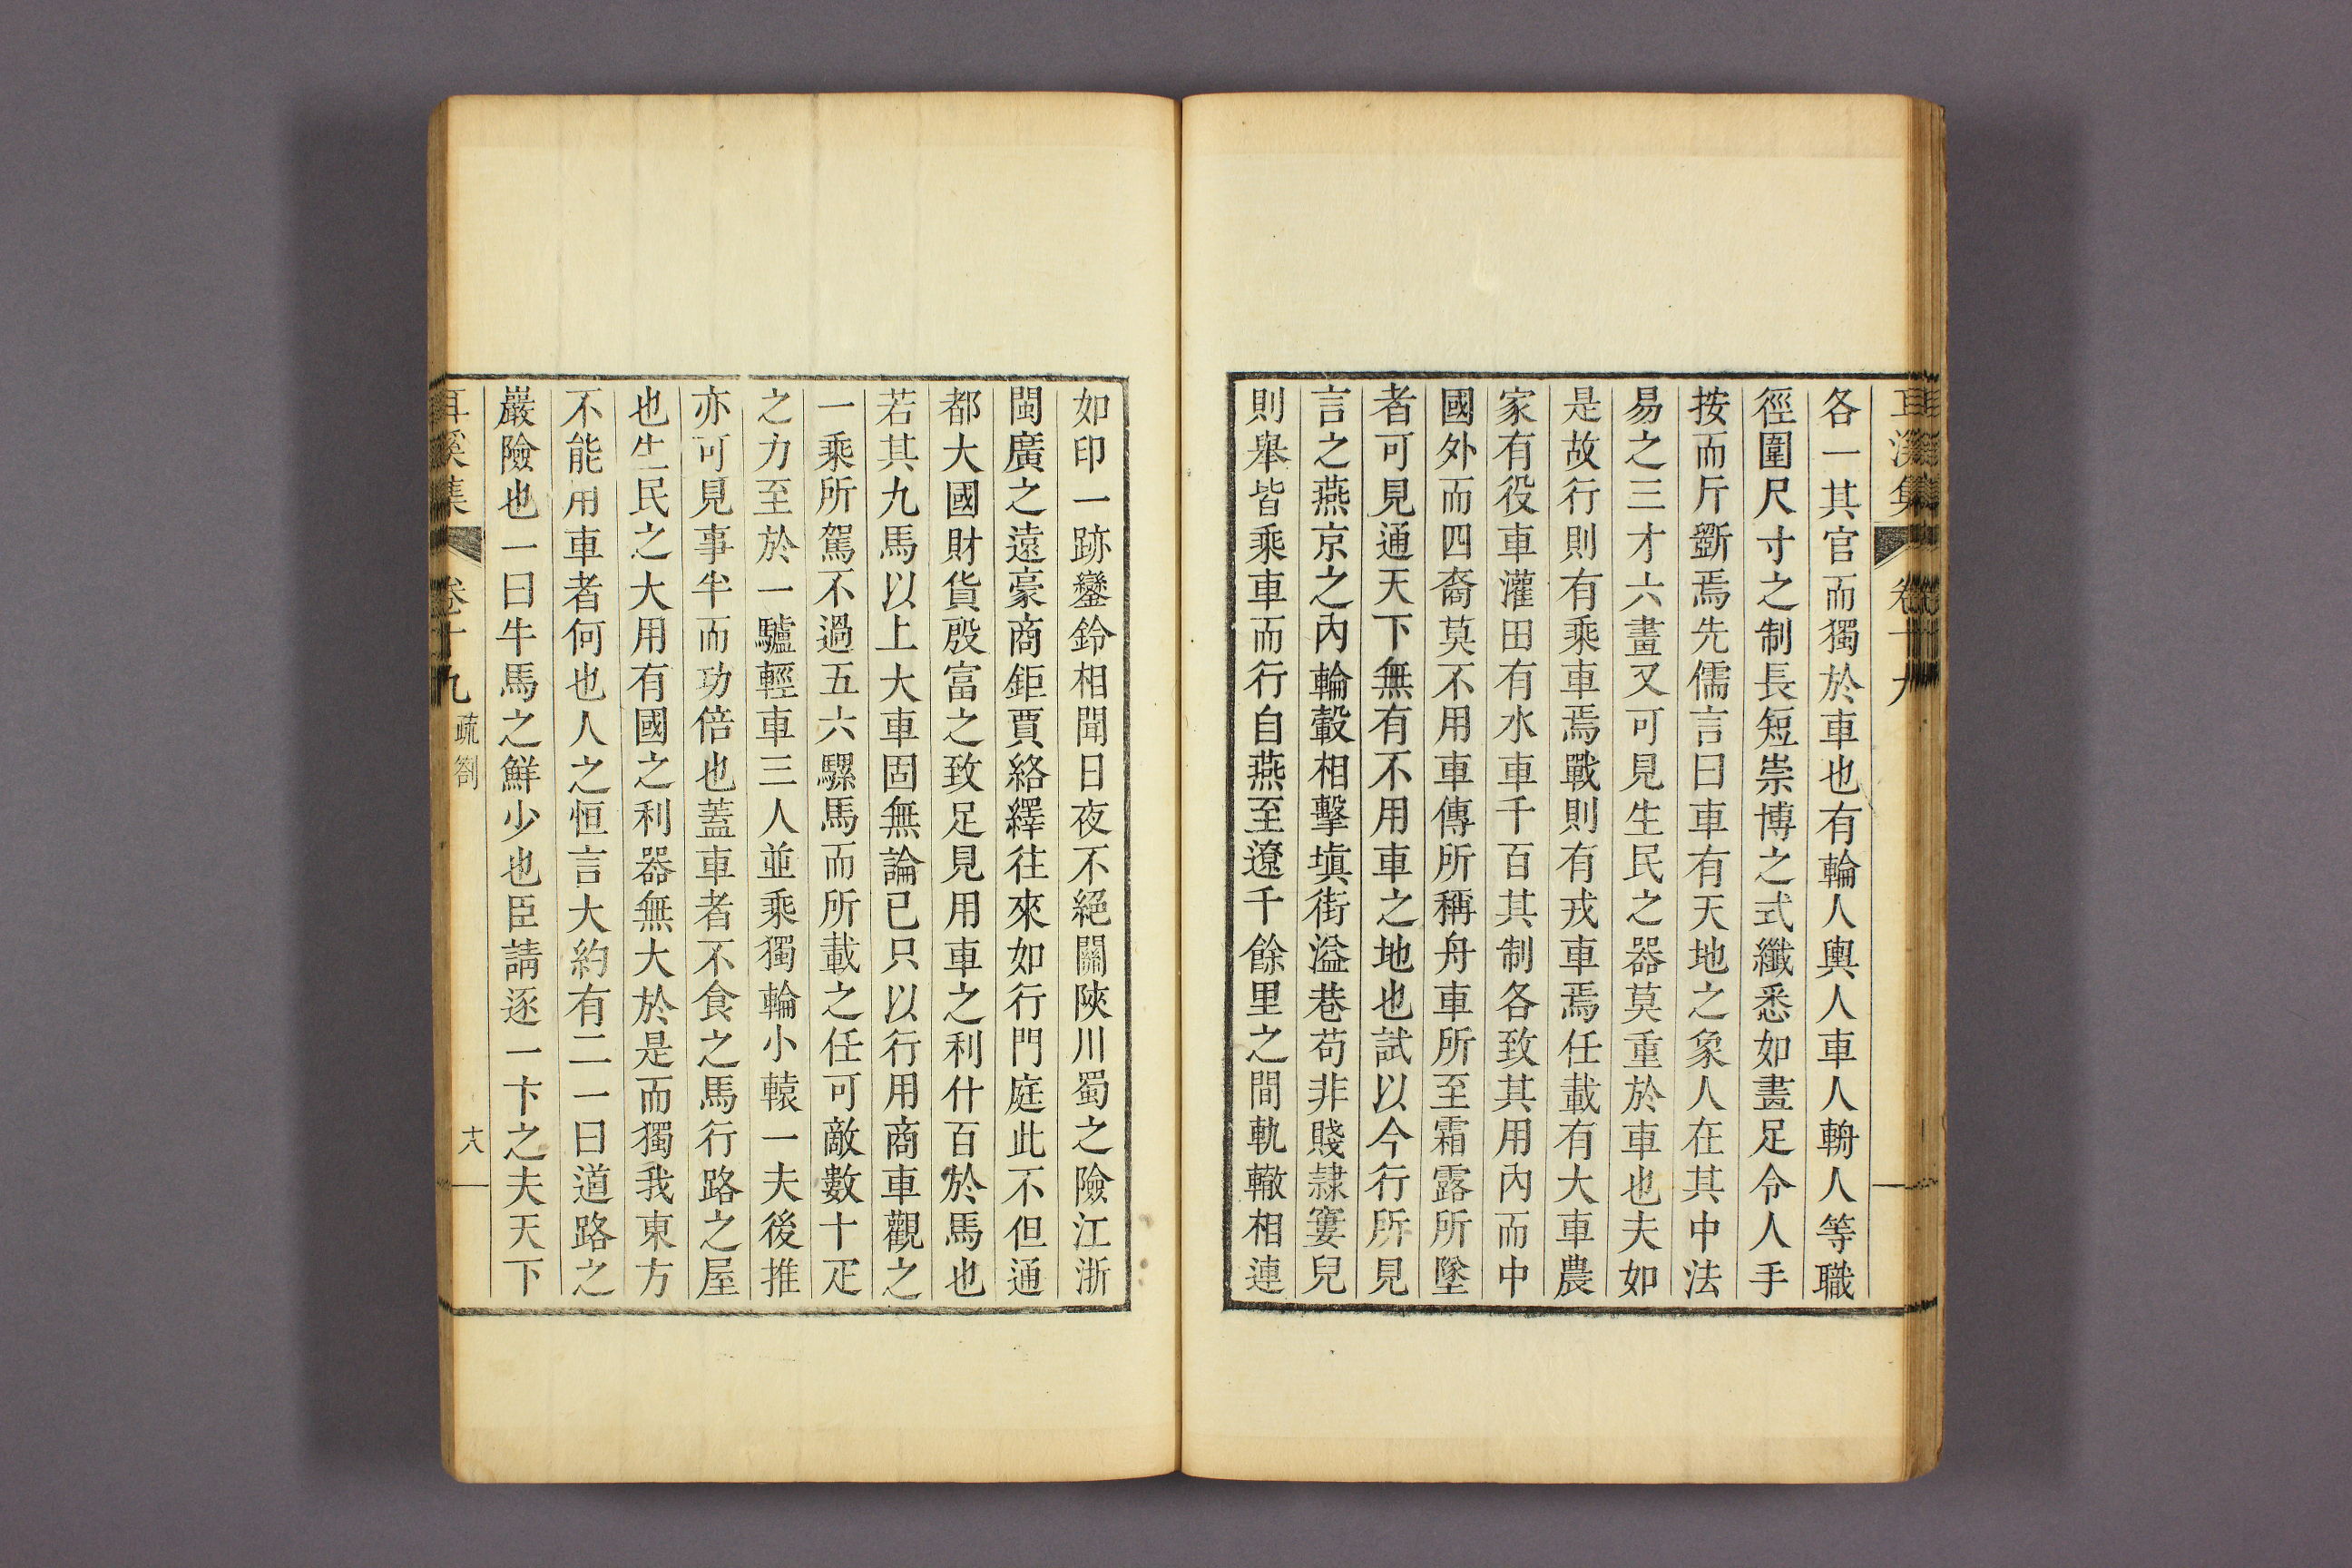 耳溪集 卷十九
各一其官而獨於車也有輪人輿人車人輈人等職
徑圍尺寸之制長短崇博之式纖悉如畫足令人手
按而斤斲焉先儒言曰車有天地之象人在其中法
易之三才六畫又可見生民之器莫重於車也夫如
是故行則有乘車焉戰則有戎車焉任載有大車農
家有役車灌田有水車千百其制各致其用內而中
國外而四裔莫不用車傳所稱舟車所至霜露所墜
者可見通天下無有不用車之地也試以今行所見
言之燕京之內輪轂相擊塡街溢巷苟非賤隷窶兒
則擧皆乘車而行自燕至遼千餘里之間軌轍相連
如印一跡鑾鈴相聞日夜不絕關陜川蜀之險江浙
閩廣之遠豪商鉅賈絡繹往來如行門庭此不但通
都大國財貨殷富之致足見用車之利什百於馬也
若其九馬以上大車固無論已只以行用商車觀之
一乘所駕不過五六騾馬而所載之任可敵數十疋
之力至於一驢輕車三人並乘獨輪小轅一夫後推
亦可見事半而功倍也蓋車者不食之馬行路之屋
也生民之大用有國之利器無大於是而獨我東方
不能用車者何也人之恒言大約有二一曰道路之
巖險也一曰牛馬之鮮少也臣請逐一卞之夫天下
耳溪集 卷十九 疏劄 十八